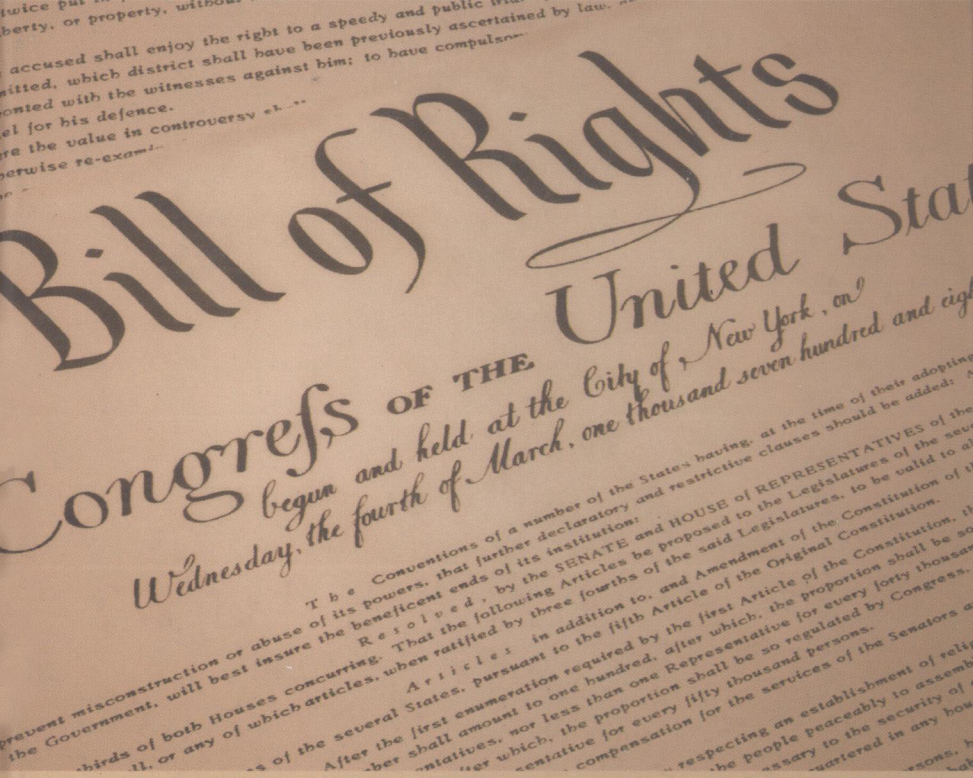 twice put
berty, or property, without
accused shall enjoy the right to a speedy and public
itted, which district shall have been previously ascertained by law.
onted with the witnesses against him; to have
el for his defence.
re the value in controversy
erwise
Bill of Rights
Congreſs OF THE United Stat
begun and held at the City of New York, on
Wednesday, the fourth of March, one thousand seven hundred and eigh
The Conventions of a number of the States having, at the time of their adopting
prevent misconstruction or abuse of its powers, that further declaratory and restrictive clauses should be added:
the Government, will best insure the beneficent ends of its institution:
Resolved, by the SENATE and HOUSE of REPRESENTATIVES of the
hirds of both Houses concurring. That the following Articles be proposed to the Legislatures of the
ll, or any of which articles, when ratified by three fourths of the said Legislatures, to be valid to
Articles in addition to, and Amendment of the Constitution of
s of the several States, pursuant to the fifth Article of the Original Constitution.
After the first enumeration required by the first Article of the Constitution,
ber shall amount to one hundred, after which, the proportion shall be so
entatives, nor less than one Representative for every forty thousand
ter which, the proportion shall be so regulated by Congress,
sentative for every fifty thousand persons.
compensation for the services of the Senators
respecting an establishment of
the people peaceably to
ssary to the security of
uartered in any